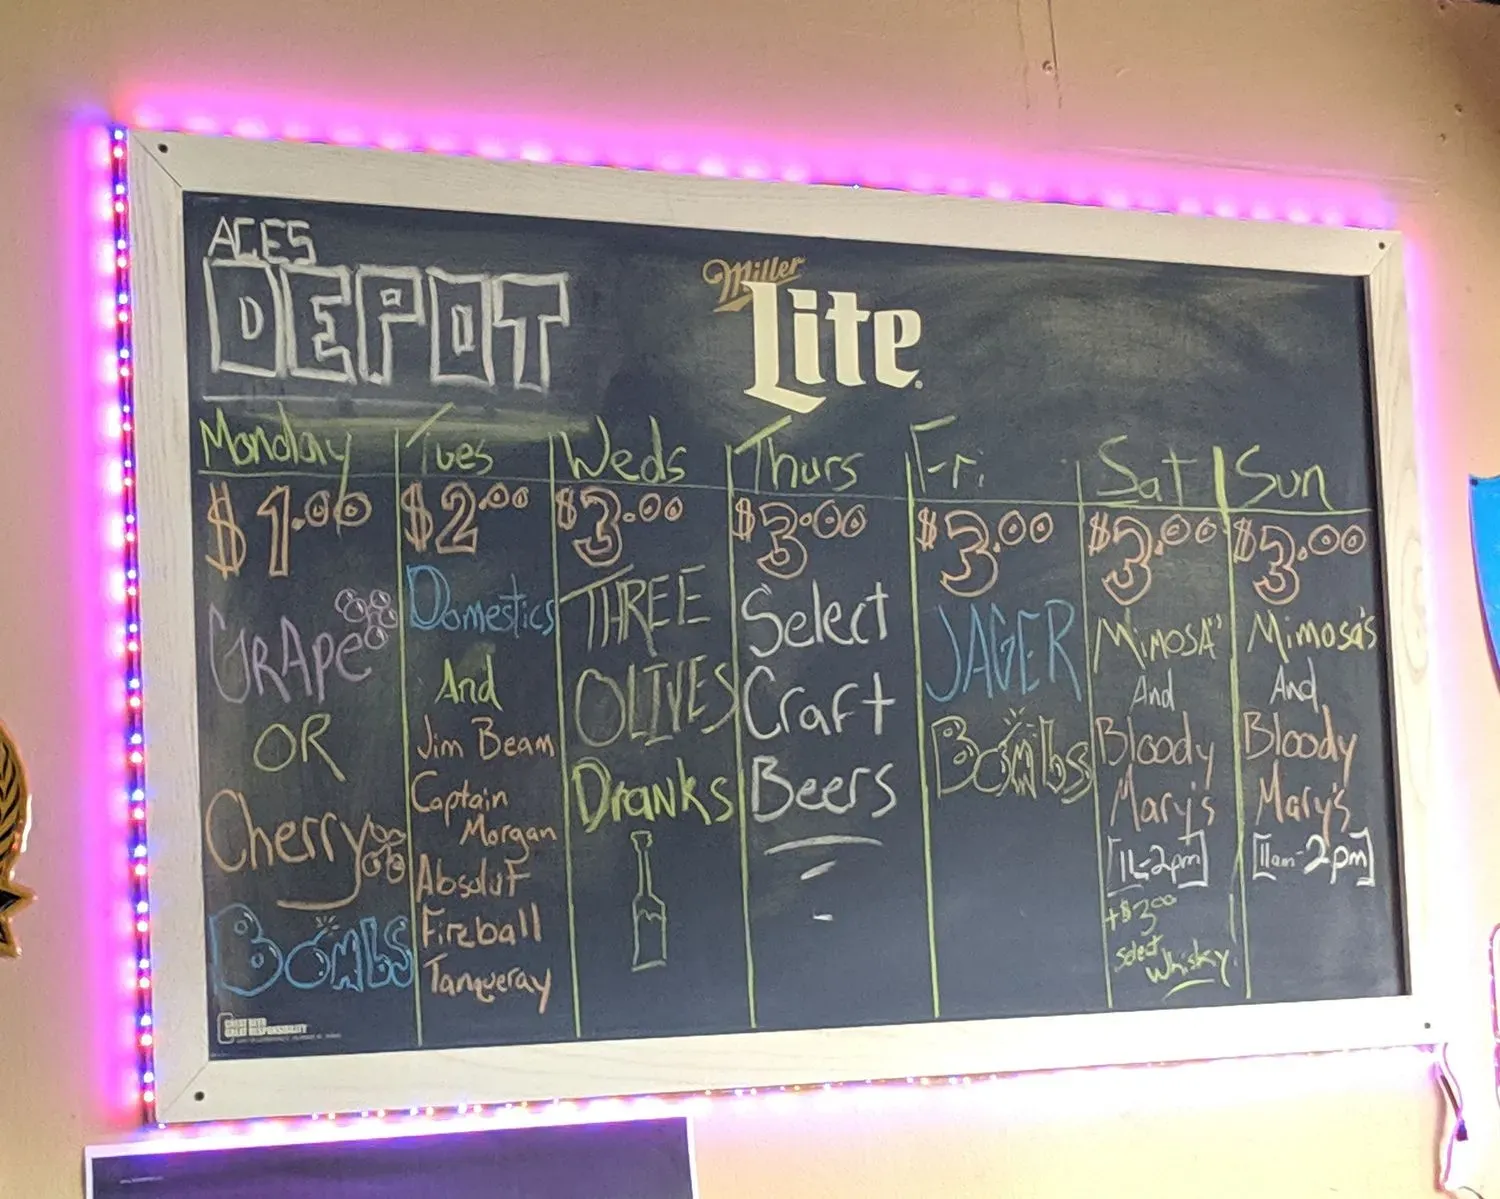 ACES
DEPOT
Miller
Lite
Monday
$1.00
GRAPE
OR
Cherry
BOMBS
Tues
$2.00
Domestics
And
Jim Beam
Captain
Morgan
Absolut
Fireball
Tanqueray
Weds
$3.00
THREE
OLIVES
Dranks
Thurs
$3.00
Select
Craft
Beers
Fri
$3.00
JAGER
BOMbs
Sat
$3.00
MiMOSA's
And
Bloody
Mary's
[11-2pm]
+$3.00
Select
Whisky
Sun
$3.00
Mimosa's
And
Bloody
Mary's
[11am-2pm]
GREAT BEER
GREAT RESPONSIBILITY